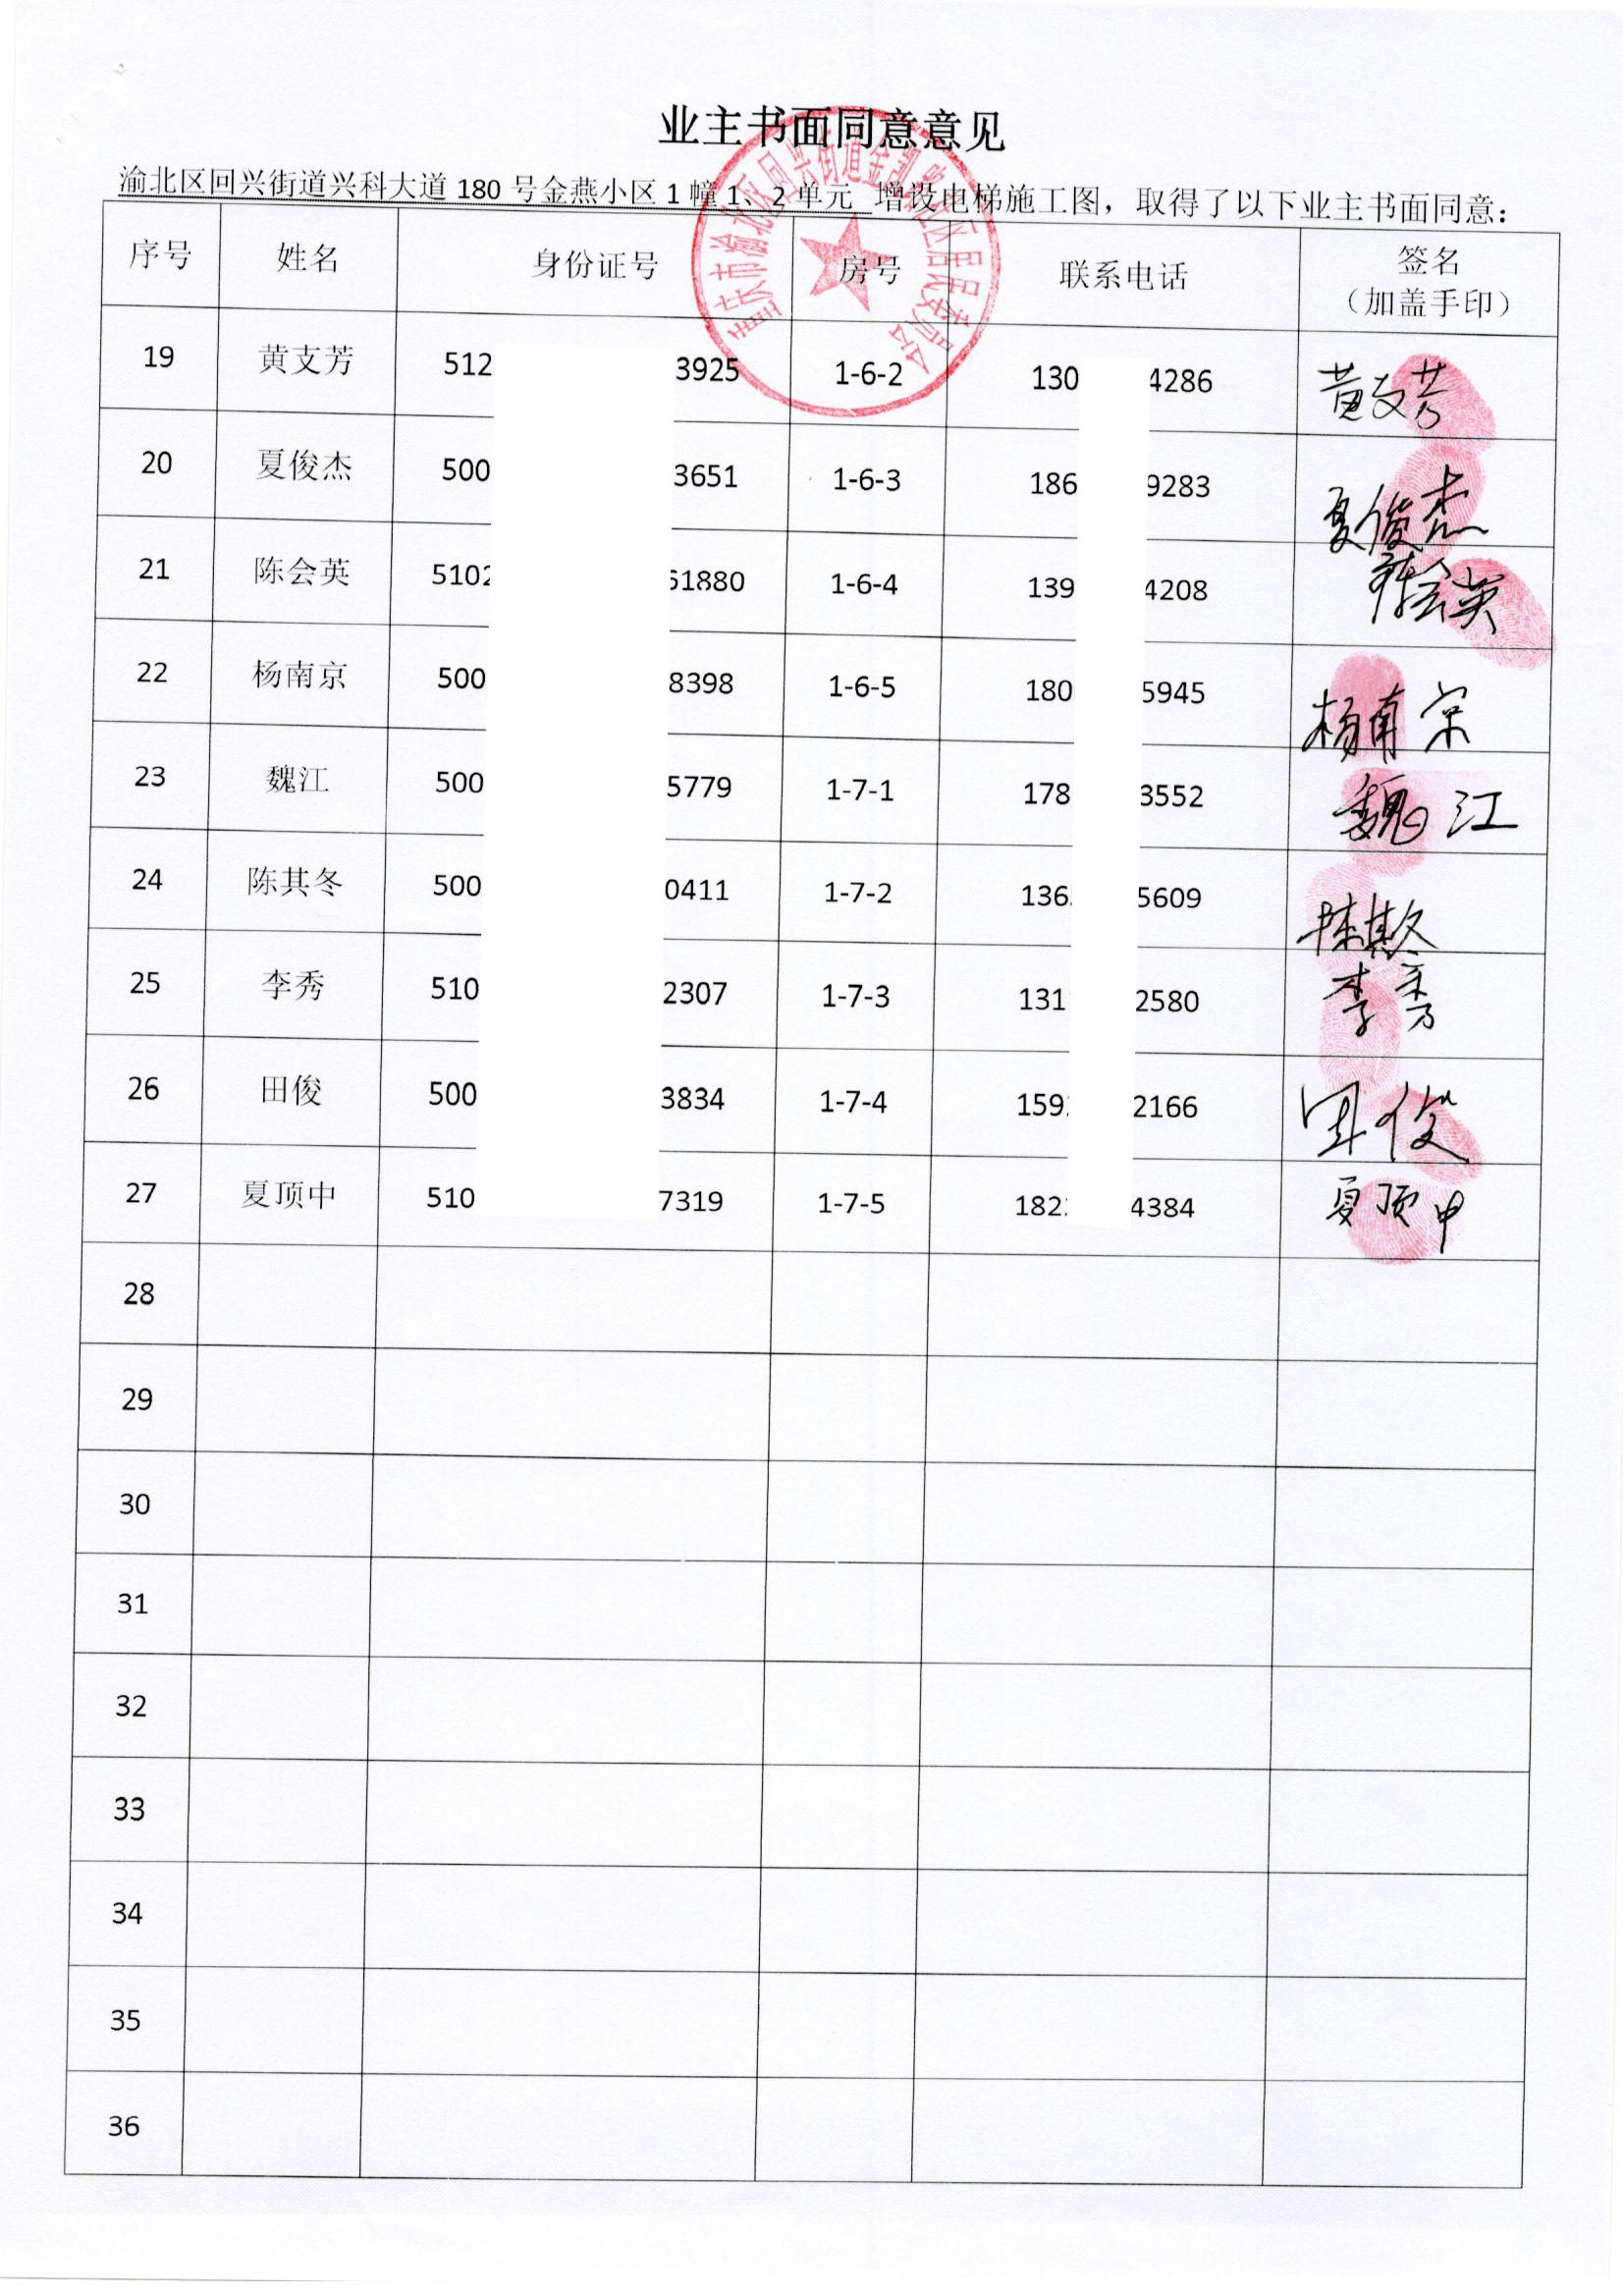 业主书面同意意见
渝北区回兴街道兴科大道 180 号金燕小区 1 幢 1、2 单元 增设电梯施工图，取得了以下业主书面同意：
序号 姓名 身份证号 房号 联系电话 签名
（加盖手印）
19 黄支芳 512 3925 1-6-2 130 4286 黄支芳
20 夏俊杰 500 3651 1-6-3 186 9283 夏俊杰
21 陈会英 5102 61880 1-6-4 139 4208 陈会英
22 杨南京 500 8398 1-6-5 180 5945 杨南京
23 魏江 500 5779 1-7-1 178 3552 魏江
24 陈其冬 500 0411 1-7-2 136 5609 陈其冬
25 李秀 510 2307 1-7-3 131 2580 李秀
26 田俊 500 3834 1-7-4 159 2166 田俊
27 夏顶中 510 7319 1-7-5 182 4384 夏顶中
28
29
30
31
32
33
34
35
36